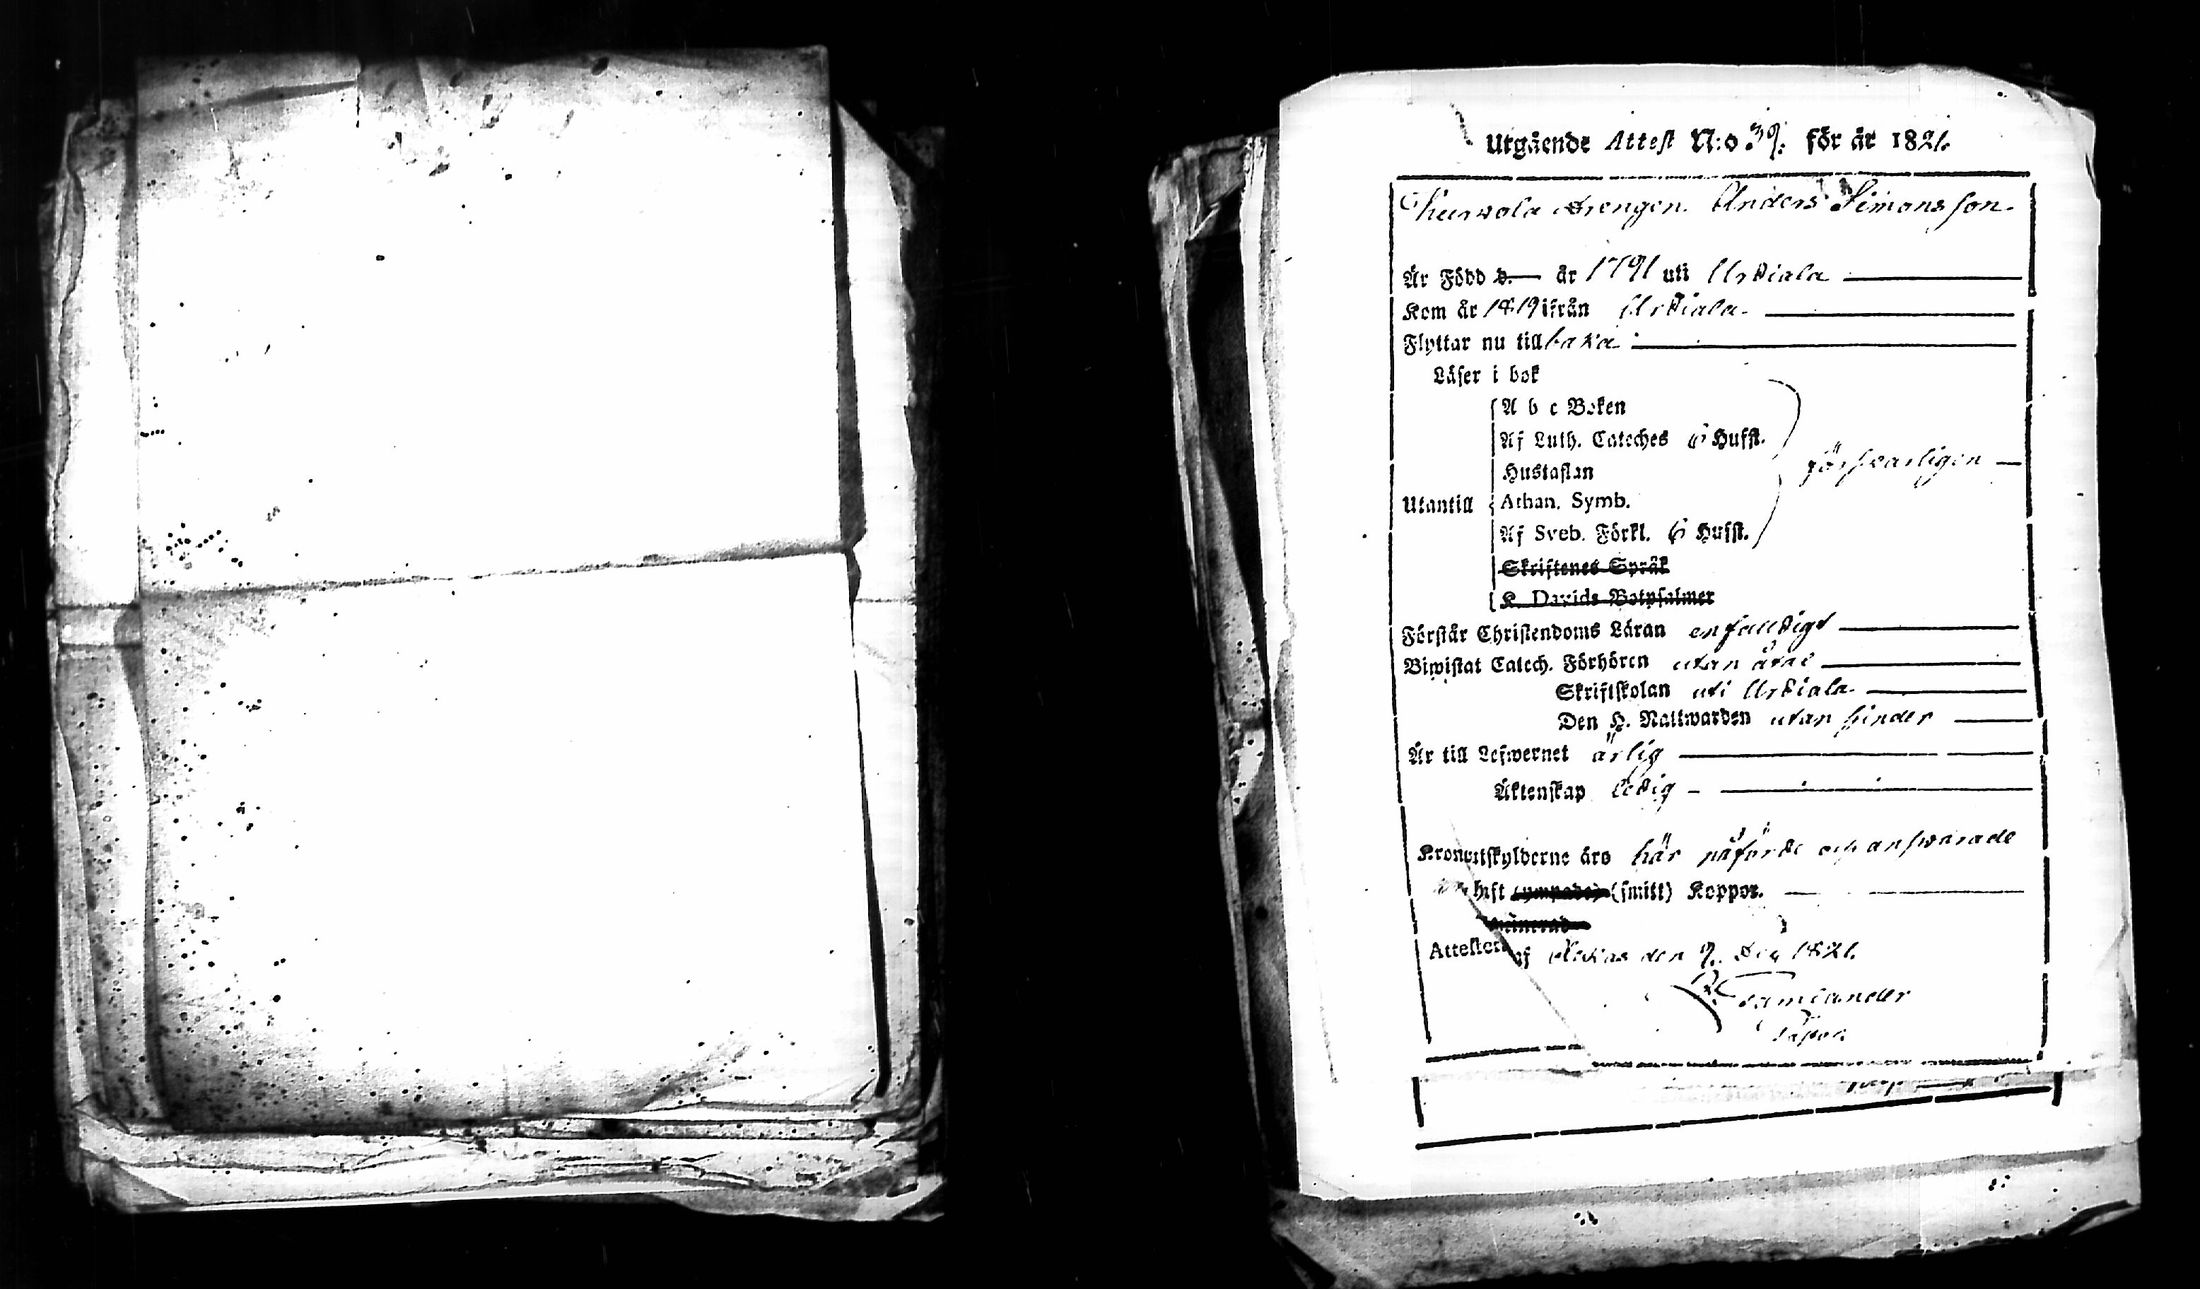 Utgående Attest N:o 39. för år 1821.
Drengen Anders Simonsson
Är Född d. år 1791 uti Urdiala
Kom år 1819 ifrån Urdiala
Flyttar nu tillbaka
Läser i bok
A b c Boken
Af Luth. Cateches 6 Hufst.
Hustaflan
försvarligen
Utantill Athan. Symb.
Af Sveb. Förkl. 6 Hufst.
Skriftenes Språk
K. Davids Botpsalmer
Förstår Christendoms Läran enfaldigt
Biwistat Catech. Förhören utan
Skriftskolan uti Urdiala
Den H. Nattwarden utan hinder
Är till Lefwernet ärlig
Äktenskap ledig
Kronoutskylderne äro här påförde och answarade
haft (ympade) (smitt) Koppor.
Attesterar af den 9. 1821.